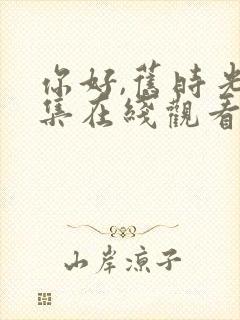 你好,舊時光
集在綫觀看
山岸凉子